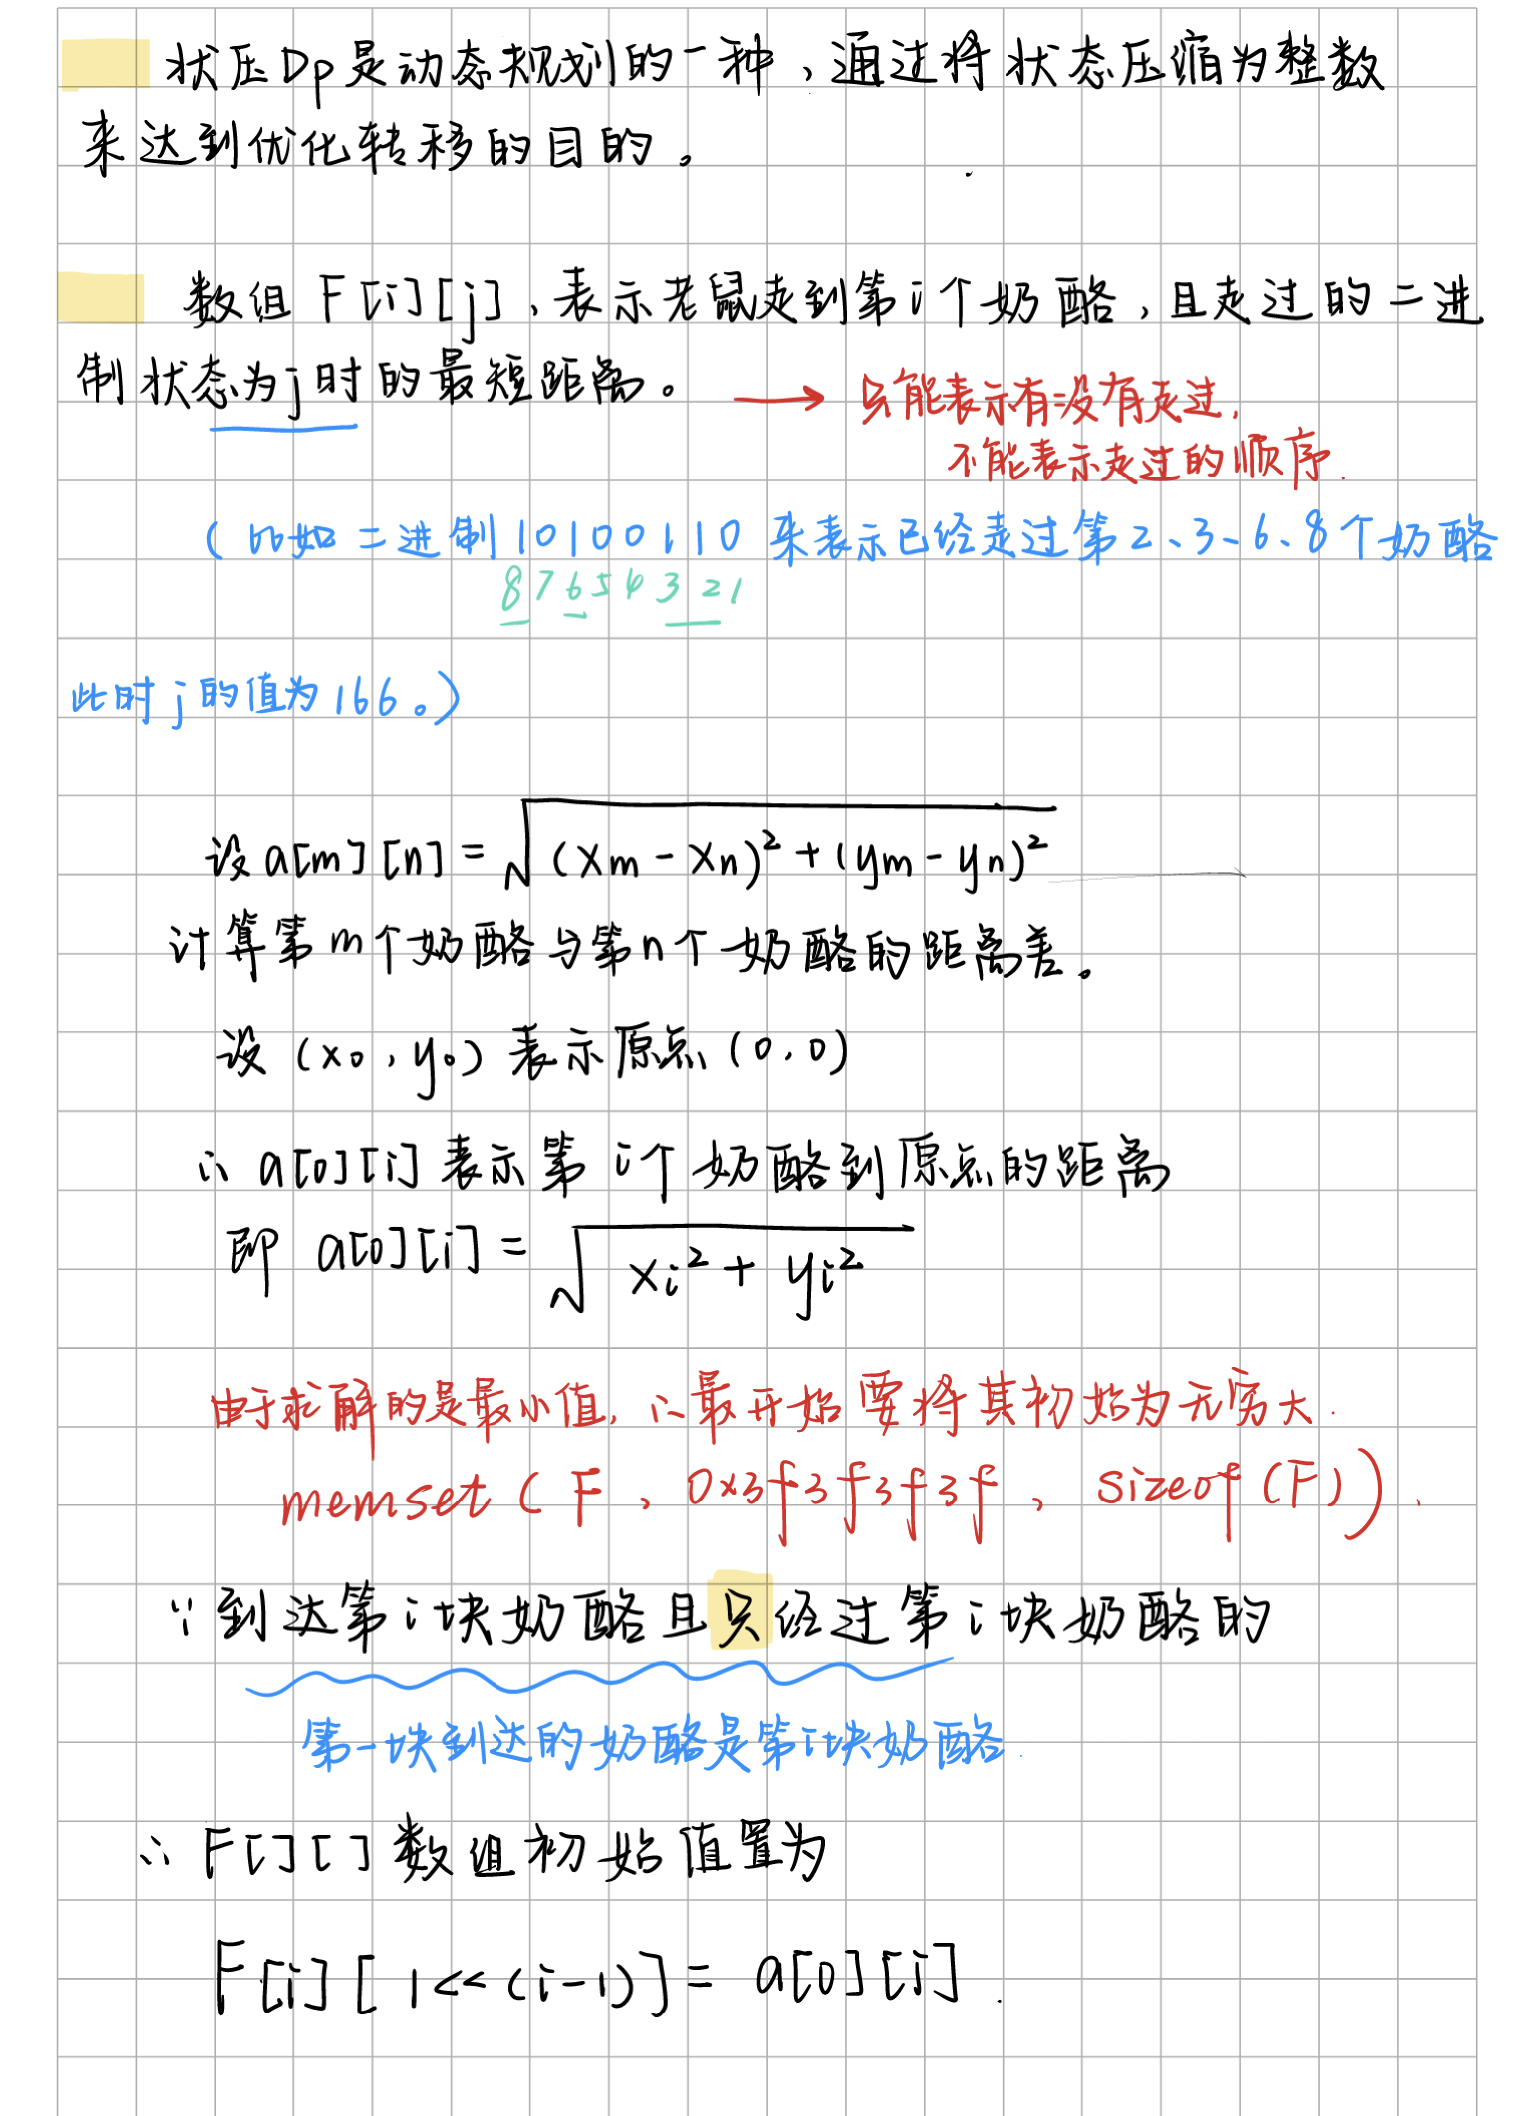 状压Dp是动态规划的一种,通过将状态压缩为整数
来达到优化转移的目的。
数组 F[i][j],表示老鼠走到第i个奶酪,且走过的二进
制状态为j时的最短距离。 → 只能表示有没有走过,
不能表示走过的顺序.
(比如二进制10100110来表示已经走过第2、3、6、8个奶酪
8 7 6 5 4 3 2 1
此时j的值为166。)
设a[m][n] = √(xm - xn)² + (ym - yn)²
计算第m个奶酪与第n个奶酪的距离差。
设 (x0, y0) 表示原点 (0,0)
∴ a[0][i] 表示第 i个奶酪到原点的距离
即 a[0][i] = √xi² + yi²
由于求解的是最小值, ∴最开始要将其初始为无穷大.
memset ( F , 0x3f3f3f3f , sizeof (F) ) .
∵到达第i块奶酪且只经过第i块奶酪的
第一块到达的奶酪是第i块奶酪.
∴ F[][] 数组初始值置为
F[i][ 1<<(i-1) ] = a[0][i] .